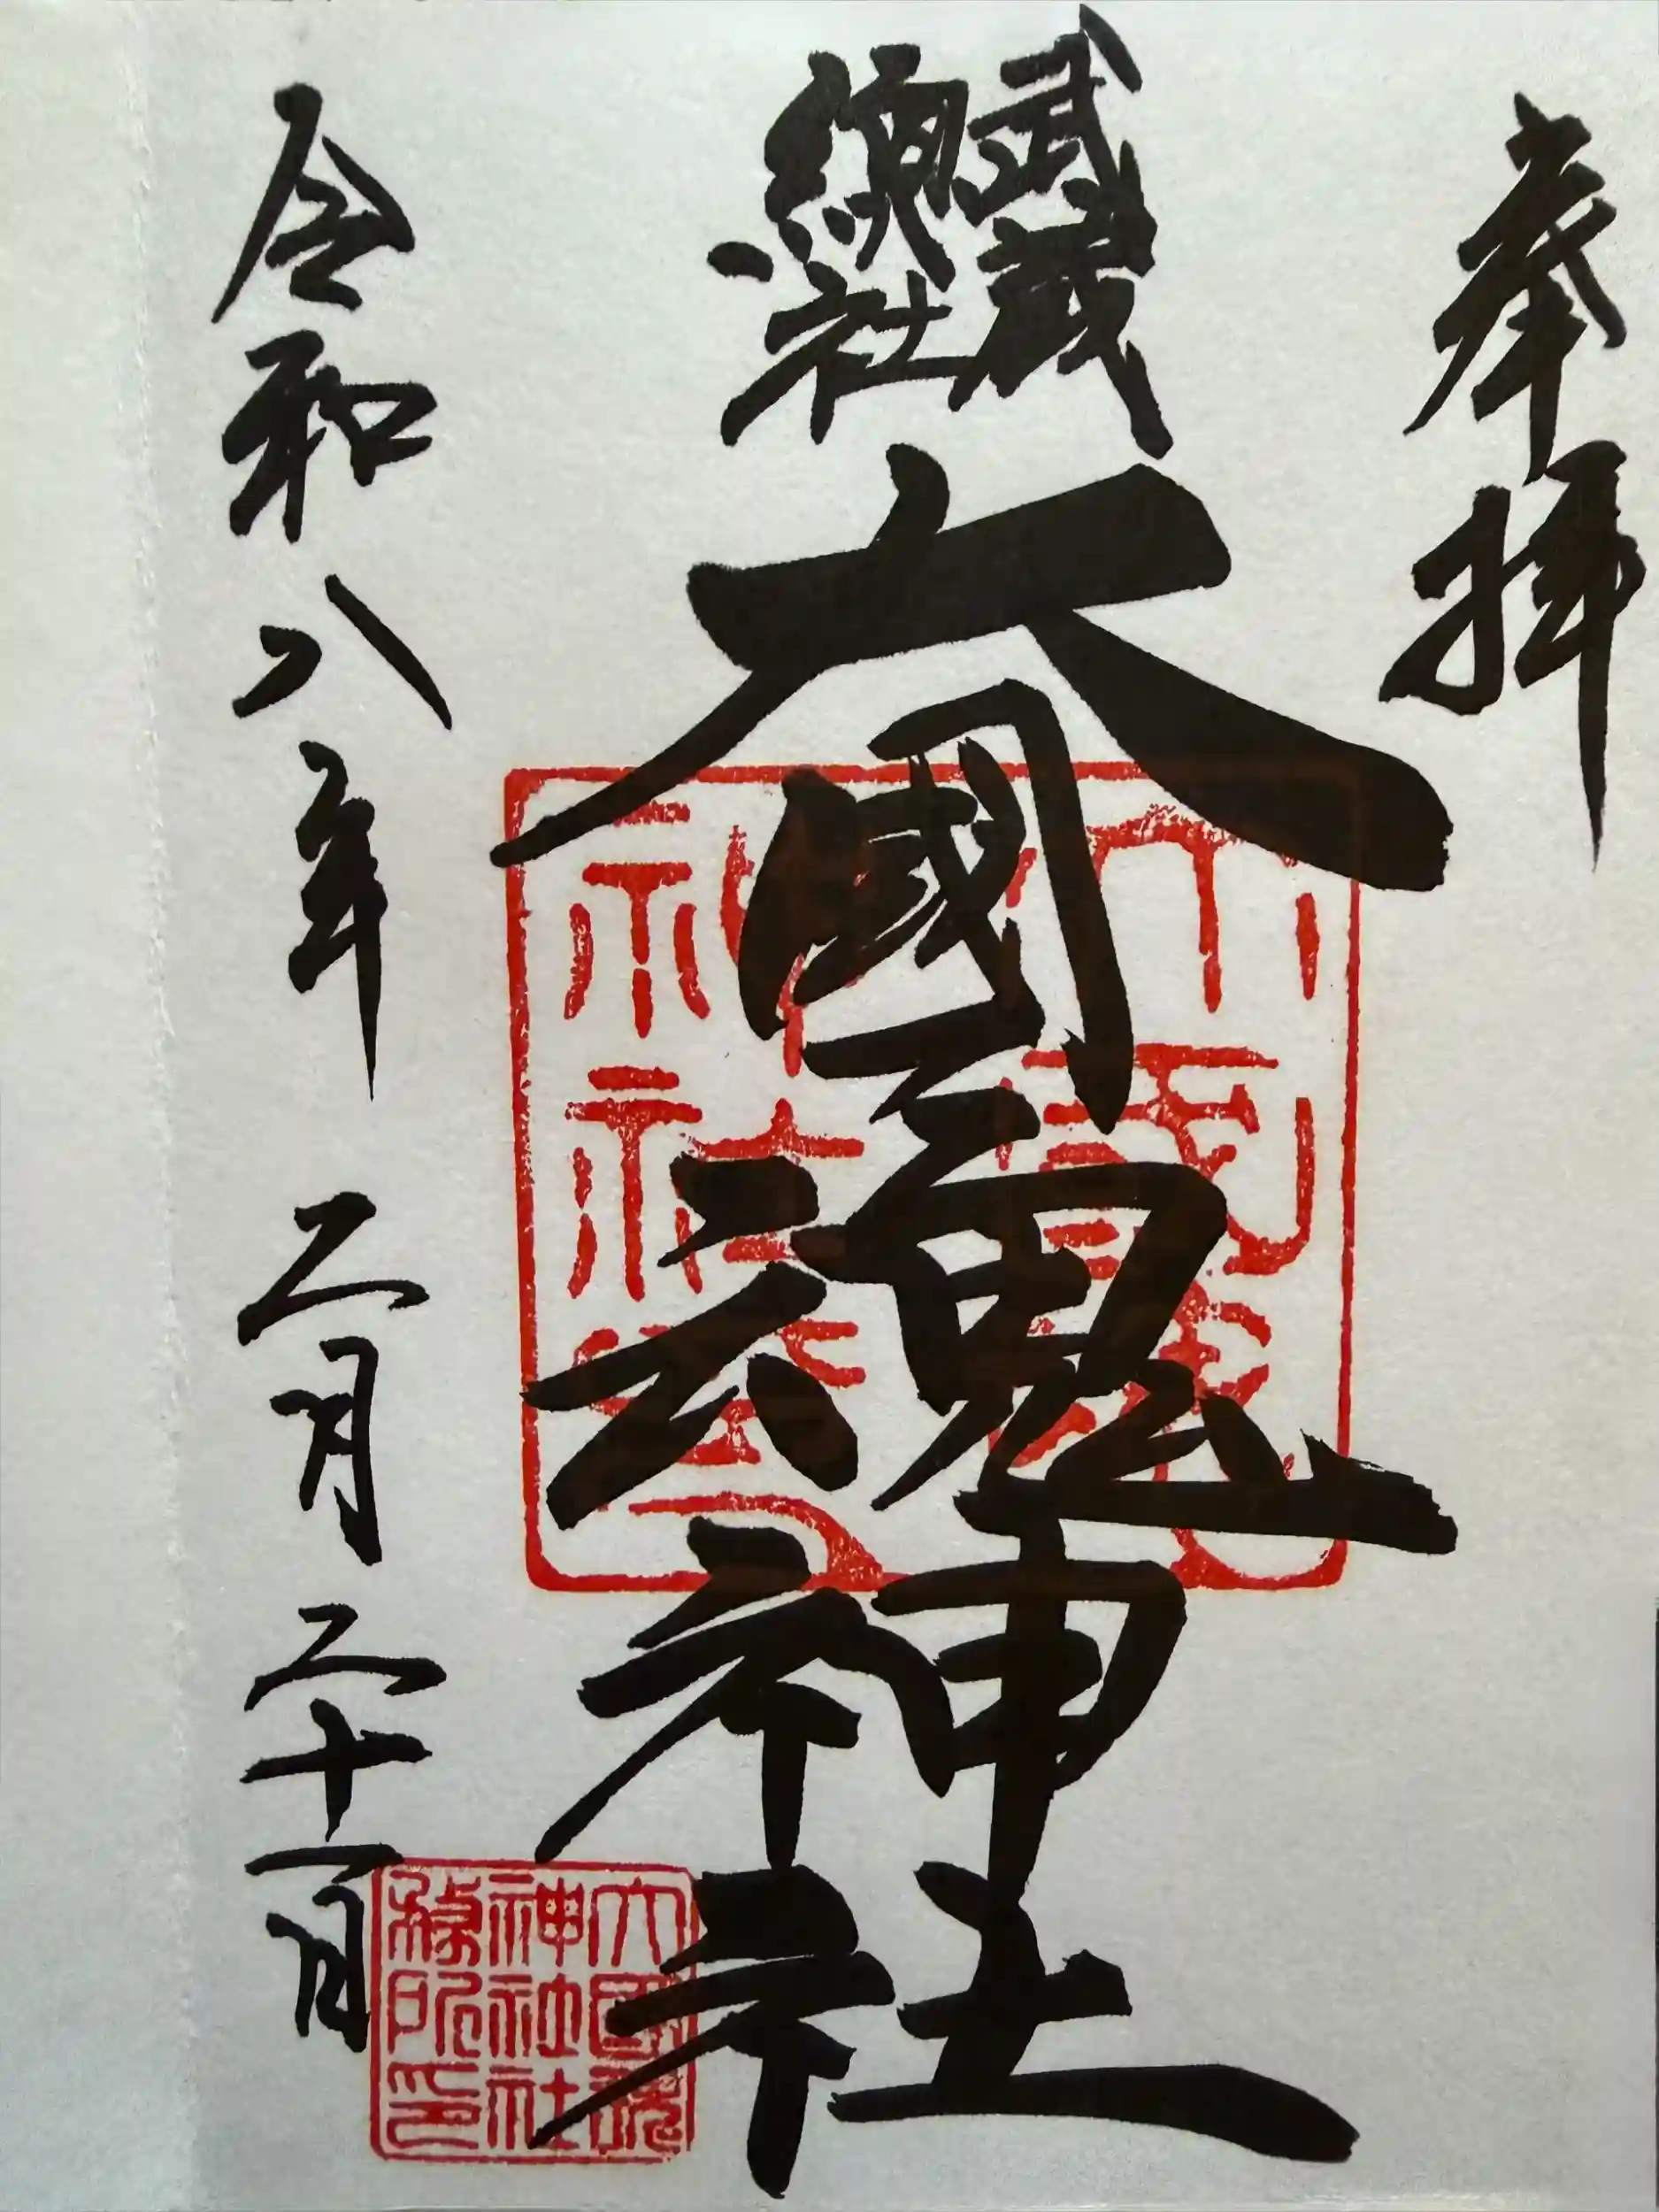 奉拝
武蔵
總社
大國魂神社
令和八年 二月二十一日
大國魂
神社
大國魂
神社社
務所印